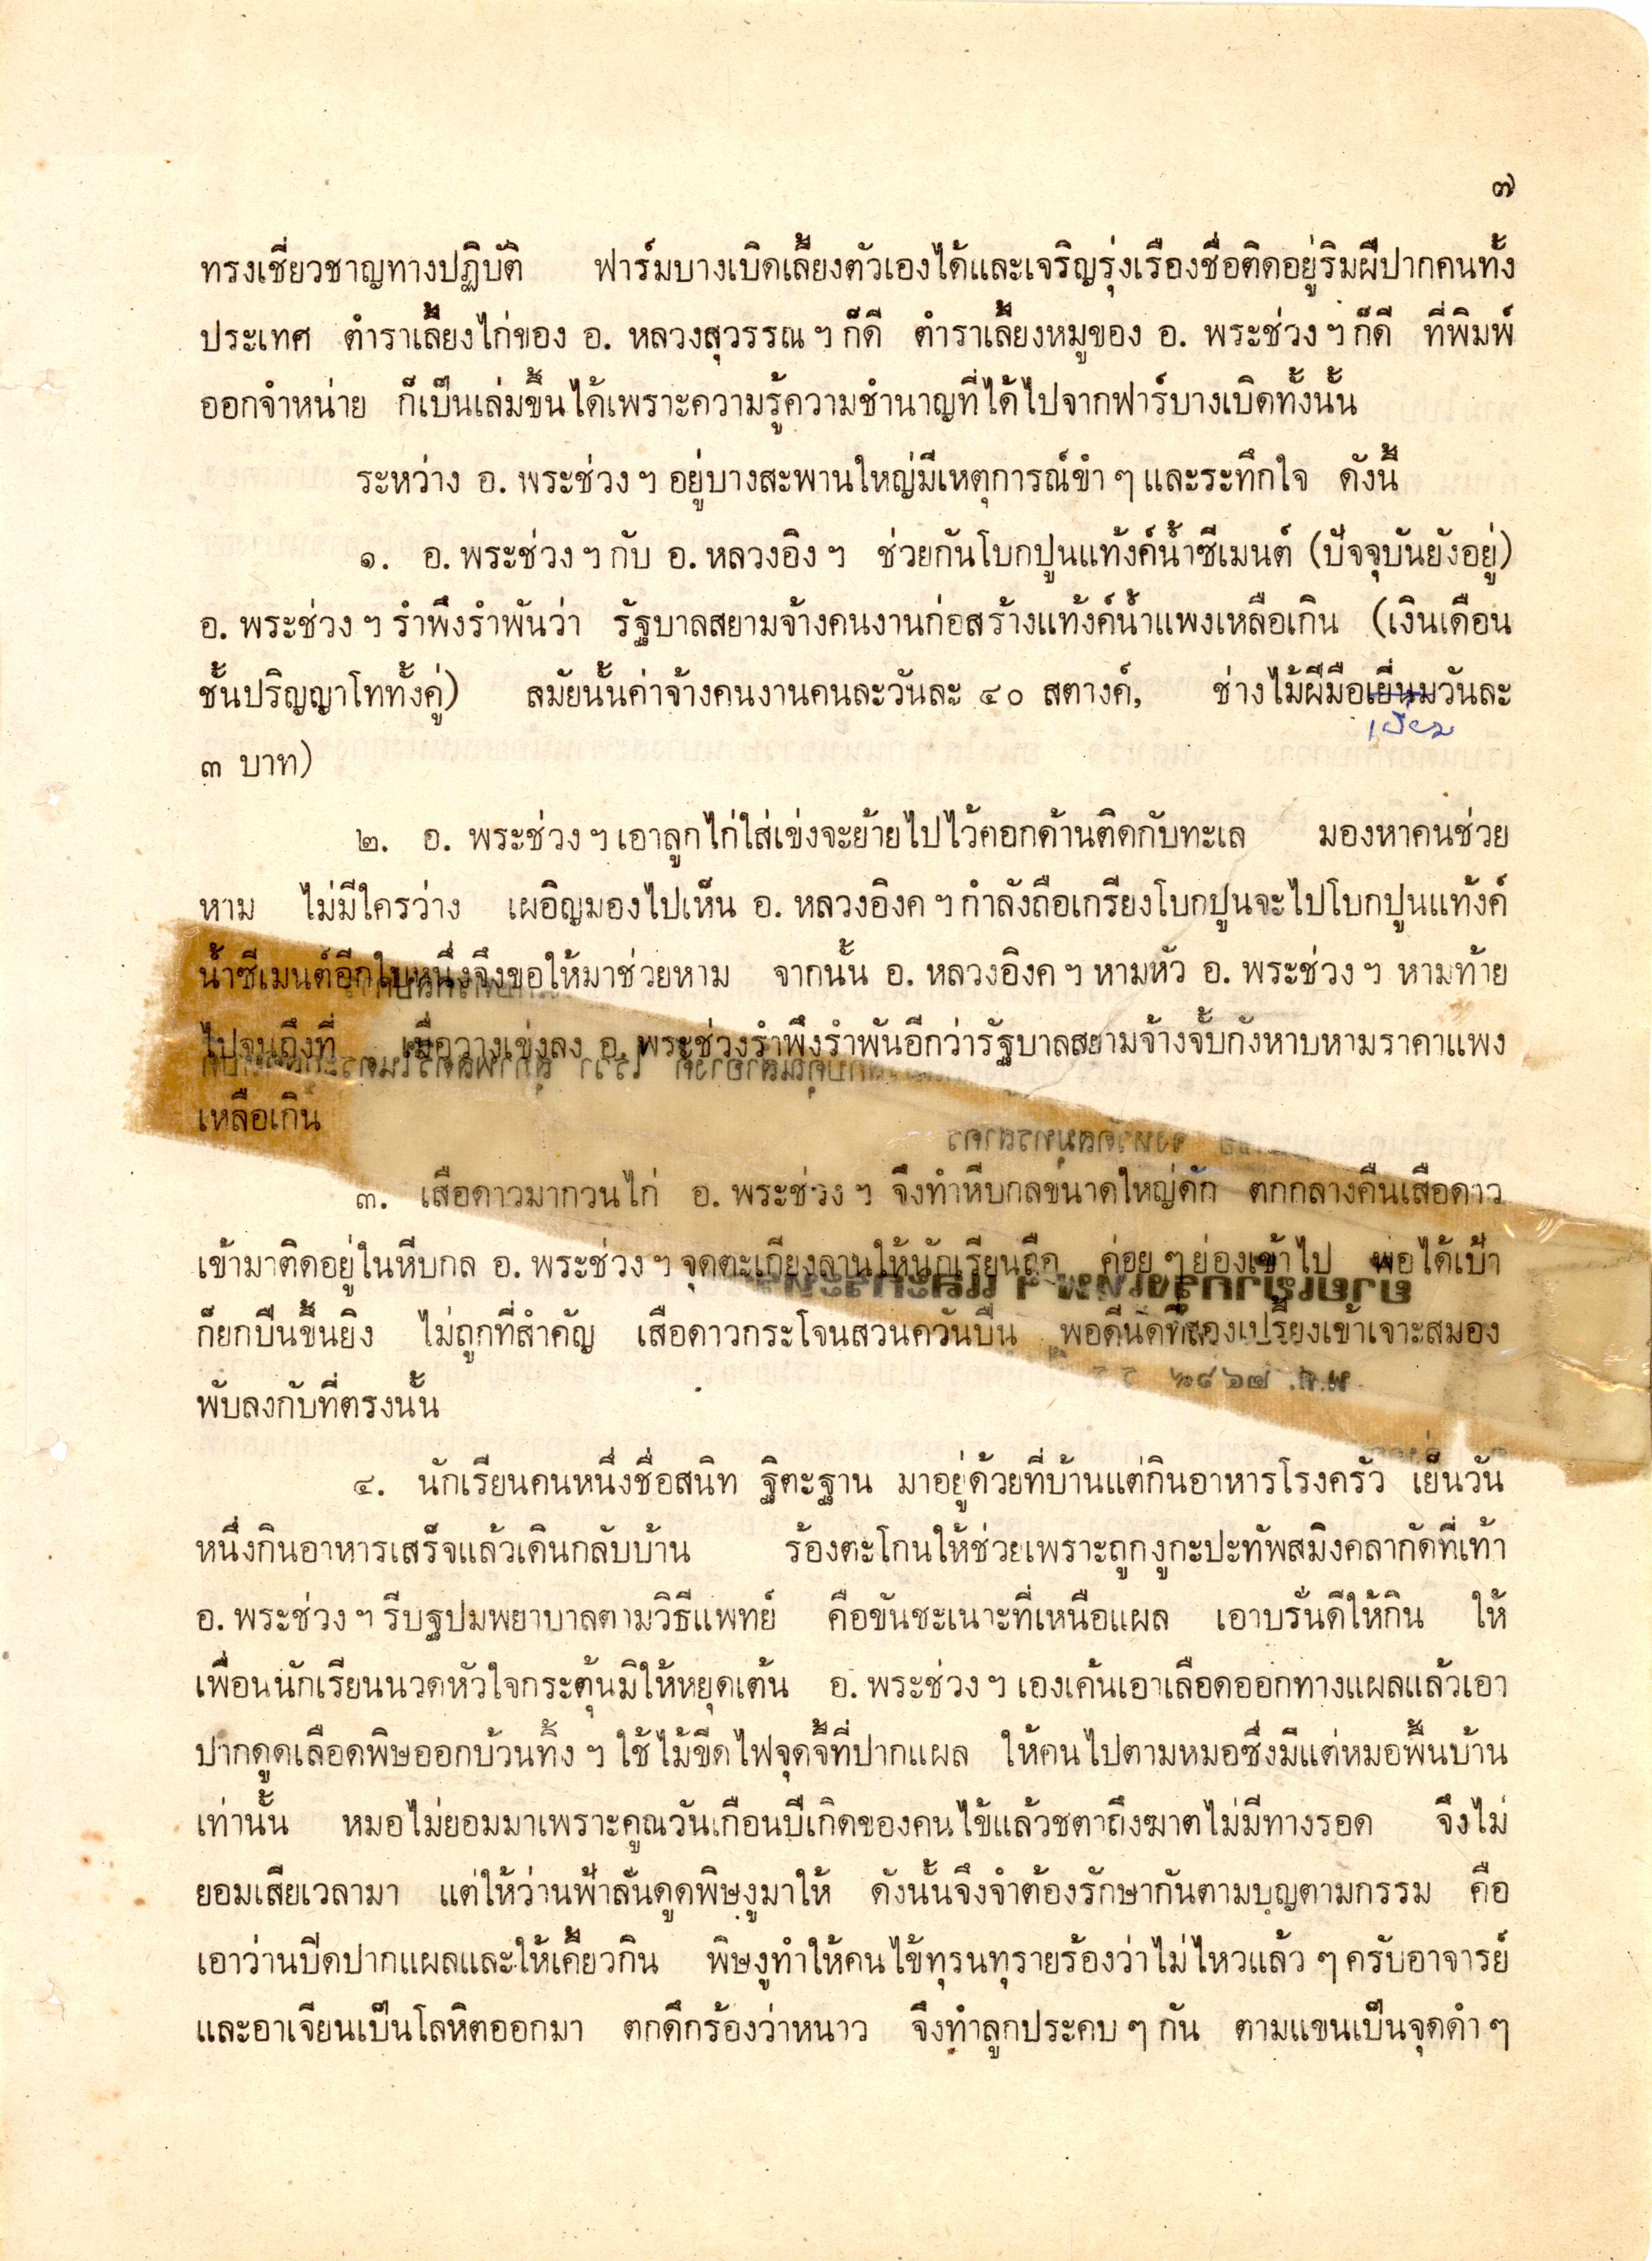 ๗
ทรงเชี่ยวชาญทางปฏิบัติ ฟาร์มบางเบิดเลี้ยงตัวเองได้และเจริญรุ่งเรืองชื่อติดอยู่ริมฝีปากคนทั้ง
ประเทศ ตำราเลี้ยงไก่ของ อ. หลวงสุวรรณ ฯ ก็ดี ตำราเลี้ยงหมูของ อ. พระช่วง ฯ ก็ดี ที่พิมพ์
ออกจำหน่าย ก็เป็นเล่มขึ้นได้เพราะความรู้ความชำนาญที่ได้ไปจากฟาร์บางเบิดทั้งนั้น
ระหว่าง อ. พระช่วง ฯ อยู่บางสะพานใหญ่มีเหตุการณ์ขำ ๆ และระทึกใจ ดังนี้
๑. อ. พระช่วง ฯ กับ อ. หลวงอิง ฯ ช่วยกันโบกปูนแท้งค์น้ำซีเมนต์ (ปัจจุบันยังอยู่)
อ. พระช่วง ฯ รำพึงรำพันว่า รัฐบาลสยามจ้างคนงานก่อสร้างแท้งค์น้ำแพงเหลือเกิน (เงินเดือน
ชั้นปริญญาโททั้งคู่) สมัยนั้นค่าจ้างคนงานคนละวันละ ๔๐ สตางค์, ช่างไม้ฝีมือเยี่นมวันละ
เยี่ยม
๓ บาท)
๒. อ. พระช่วง ฯ เอาลูกไก่ใส่เข่งจะย้ายไปไว้คอกด้านติดกับทะเล มองหาคนช่วย
หาม ไม่มีใครว่าง เผอิญมองไปเห็น อ. หลวงอิงค ฯ กำลังถือเกรียงโบกปูนจะไปโบกปูนแท้งค์
น้ำซีเมนต์อีกใบหนึ่งจึงขอให้มาช่วยหาม จากนั้น อ. หลวงอิงค ฯ หามหัว อ. พระช่วง ฯ หามท้าย
ไปจนถึงที่ เมื่อวางเข่งลง อ. พระช่วงรำพึงรำพันอีกว่ารัฐบาลสยามจ้างจั้บกังหาบหามราคาแพง
เหลือเกิน
๓. เสือดาวมากวนไก่ อ. พระช่วง ฯ จึงทำหีบกลขนาดใหญ่ดัก ตกกลางคืนเสือดาว
เข้ามาติดอยู่ในหีบกล อ. พระช่วง ฯ จุดตะเกียงลานให้นักเรียนถือ ค่อย ๆ ย่องเข้าไป พอได้เป้า
ก็ยกปืนขึ้นยิง ไม่ถูกที่สำคัญ เสือดาวกระโจนสวนควันปืน พอดีนัดที่สองเปรี้ยงเข้าเจาะสมอง
พับลงกับที่ตรงนั้น
๔. นักเรียนคนหนึ่งชื่อสนิท ฐิตะฐาน มาอยู่ด้วยที่บ้านแต่กินอาหารโรงครัว เย็นวัน
หนึ่งกินอาหารเสร็จแล้วเดินกลับบ้าน ร้องตะโกนให้ช่วยเพราะถูกงูกะปะทัพสมิงคลากัดที่เท้า
อ. พระช่วง ฯ รีบฐปมพยาบาลตามวิธีแพทย์ คือขันชะเนาะที่เหนือแผล เอาบรั่นดีให้กิน ให้
เพื่อนนักเรียนนวดหัวใจกระตุ้นมิให้หยุดเต้น อ. พระช่วง ฯ เองเค้นเอาเลือดออกทางแผลแล้วเอา
ปากดูดเลือดพิษออกบ้วนทิ้ง ฯ ใช้ไม้ขีดไฟจุดจี้ที่ปากแผล ให้คนไปตามหมอซึ่งมีแต่หมอพื้นบ้าน
เท่านั้น หมอไม่ยอมมาเพราะคูณวันเกือนปีเกิดของคนไข้แล้วชตาถึงฆาตไม่มีทางรอด จึงไม่
ยอมเสียเวลามา แต่ให้ว่านฟ้าลั่นดูดพิษงูมาให้ ดังนั้นจึงจำต้องรักษากันตามบุญตามกรรม คือ
เอาว่านปิดปากแผลและให้เคี้ยวกิน พิษงูทำให้คนไข้ทุรนทุรายร้องว่าไม่ไหวแล้ว ๆ ครับอาจารย์
และอาเจียนเป็นโลหิตออกมา ตกดึกร้องว่าหนาว จึงทำลูกประคบ ๆ กัน ตามแขนเป็นจุดดำ ๆ